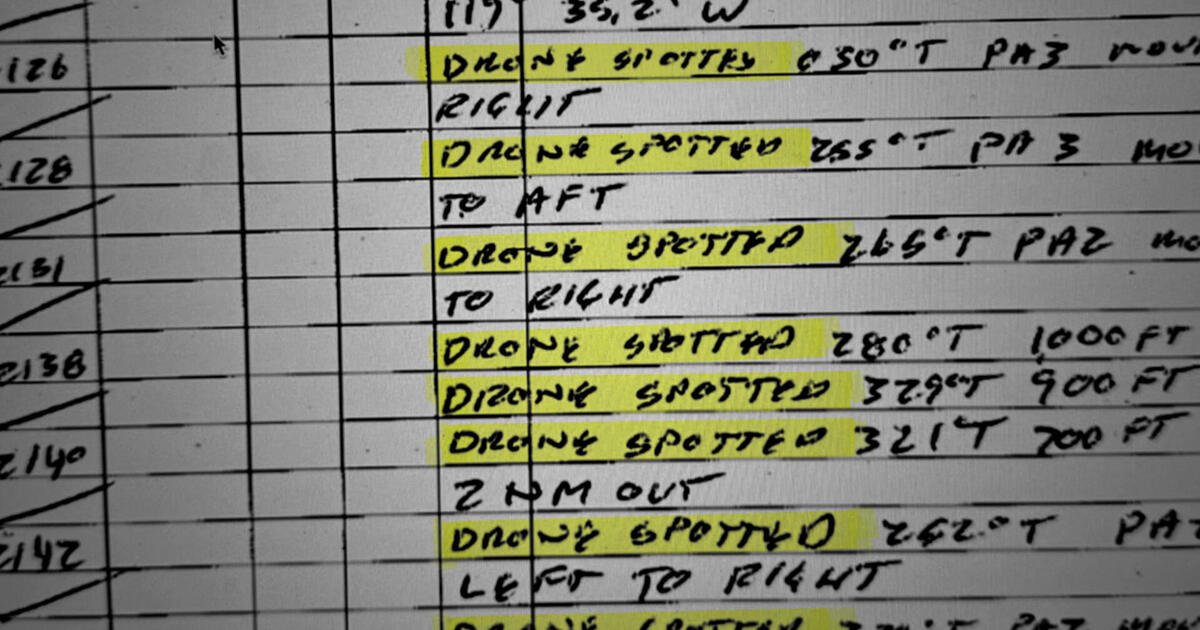 119° 35.2' W
126 DRONE SPOTTED 050°T PA3 MOV
RIGHT
128 DRONE SPOTTED 255°T PA 3 MO
TO AFT
2131 DRONE SPOTTED 265°T PA2 MO
TO RIGHT
2138 DRONE SPOTTED 280°T 1000 FT
DRONE SPOTTED 329°T 900 FT
2140 DRONE SPOTTED 321°T 700 FT
2 NM OUT
2142 DRONE SPOTTED 262°T PA2
LEFT TO RIGHT
DRONE SPOTTED